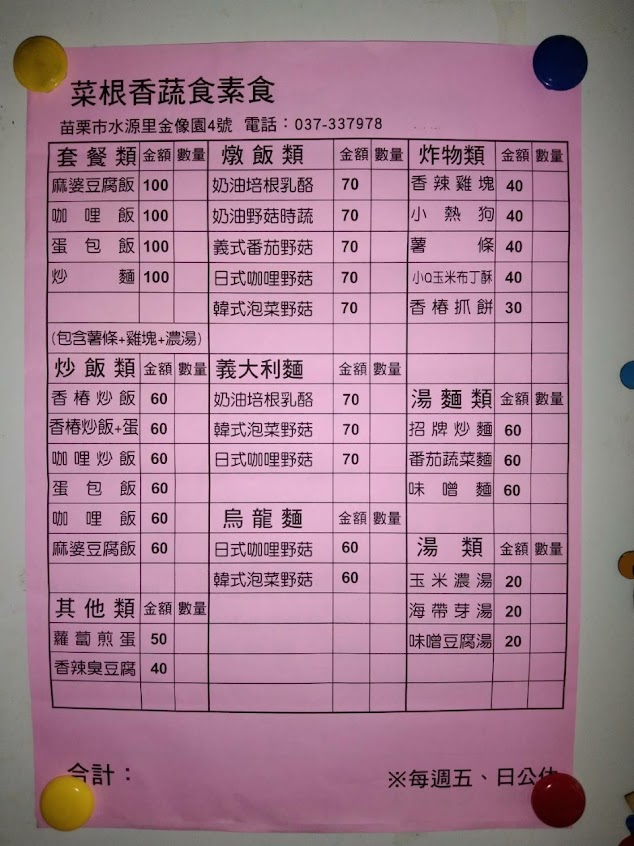 菜根香蔬食素食
苗栗市水源里金像園4號 電話：037-337978
套餐類 金額 數量
麻婆豆腐飯 100
咖哩飯 100
蛋包飯 100
炒麵 100
(包含薯條+雞塊+濃湯)
炒飯類 金額 數量
香椿炒飯 60
香椿炒飯+蛋 60
咖哩炒飯 60
蛋包飯 60
咖哩飯 60
麻婆豆腐飯 60
其他類 金額 數量
蘿蔔煎蛋 50
香辣臭豆腐 40
燉飯類 金額 數量
奶油培根乳酪 70
奶油野菇時蔬 70
義式番茄野菇 70
日式咖哩野菇 70
韓式泡菜野菇 70
義大利麵 金額 數量
奶油培根乳酪 70
韓式泡菜野菇 70
日式咖哩野菇 70
烏龍麵 金額 數量
日式咖哩野菇 60
韓式泡菜野菇 60
炸物類 金額 數量
香辣雞塊 40
小熱狗 40
薯條 40
小Q玉米布丁酥 40
香椿抓餅 30
湯麵類 金額 數量
招牌炒麵 60
番茄蔬菜麵 60
味噌麵 60
湯類 金額 數量
玉米濃湯 20
海帶芽湯 20
味噌豆腐湯 20
合計：
※每週五、日公休